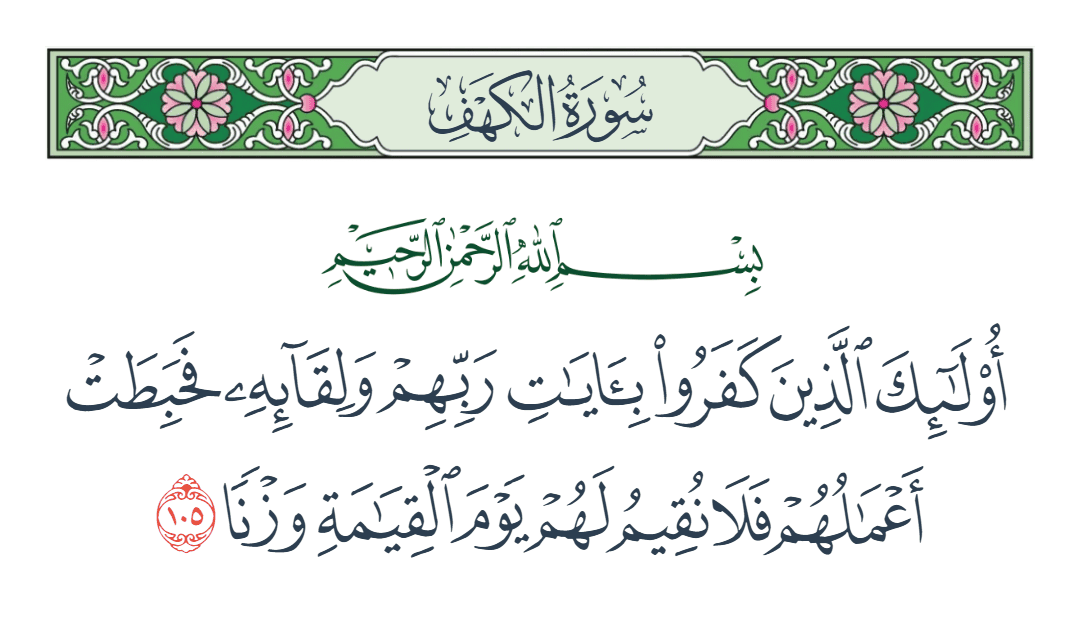 سُورَةُ الكَهْفِ
بِسْمِ ٱللَّهِ ٱلرَّحْمَٰنِ ٱلرَّحِيمِ
أُو۟لَٰٓئِكَ ٱلَّذِينَ كَفَرُوا۟ بِـَٔايَٰتِ رَبِّهِمْ وَلِقَآئِهِۦ فَحَبِطَتْ
أَعْمَٰلُهُمْ فَلَا نُقِيمُ لَهُمْ يَوْمَ ٱلْقِيَٰمَةِ وَزْنًا ١٠٥